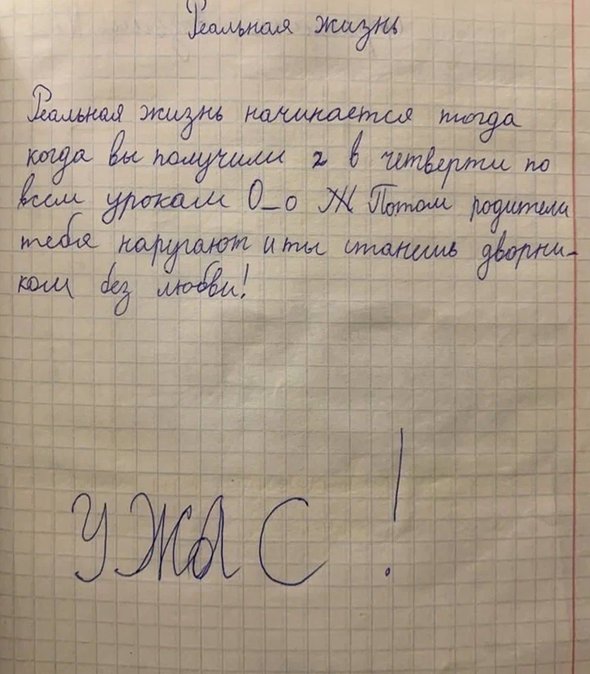 Реальная жизнь
Реальная жизнь начинается тогда
когда вы получили 2 в четверти по
всем урокам О_о Ж Потом родители
тебя наругают и ты станешь дворни-
ком, без любви!
УЖАС!